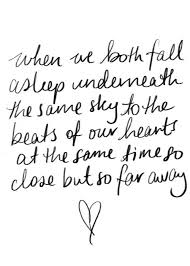 when we both fall
asleep underneath
the same sky to the
beats of our hearts
at the same time so
close but so far away